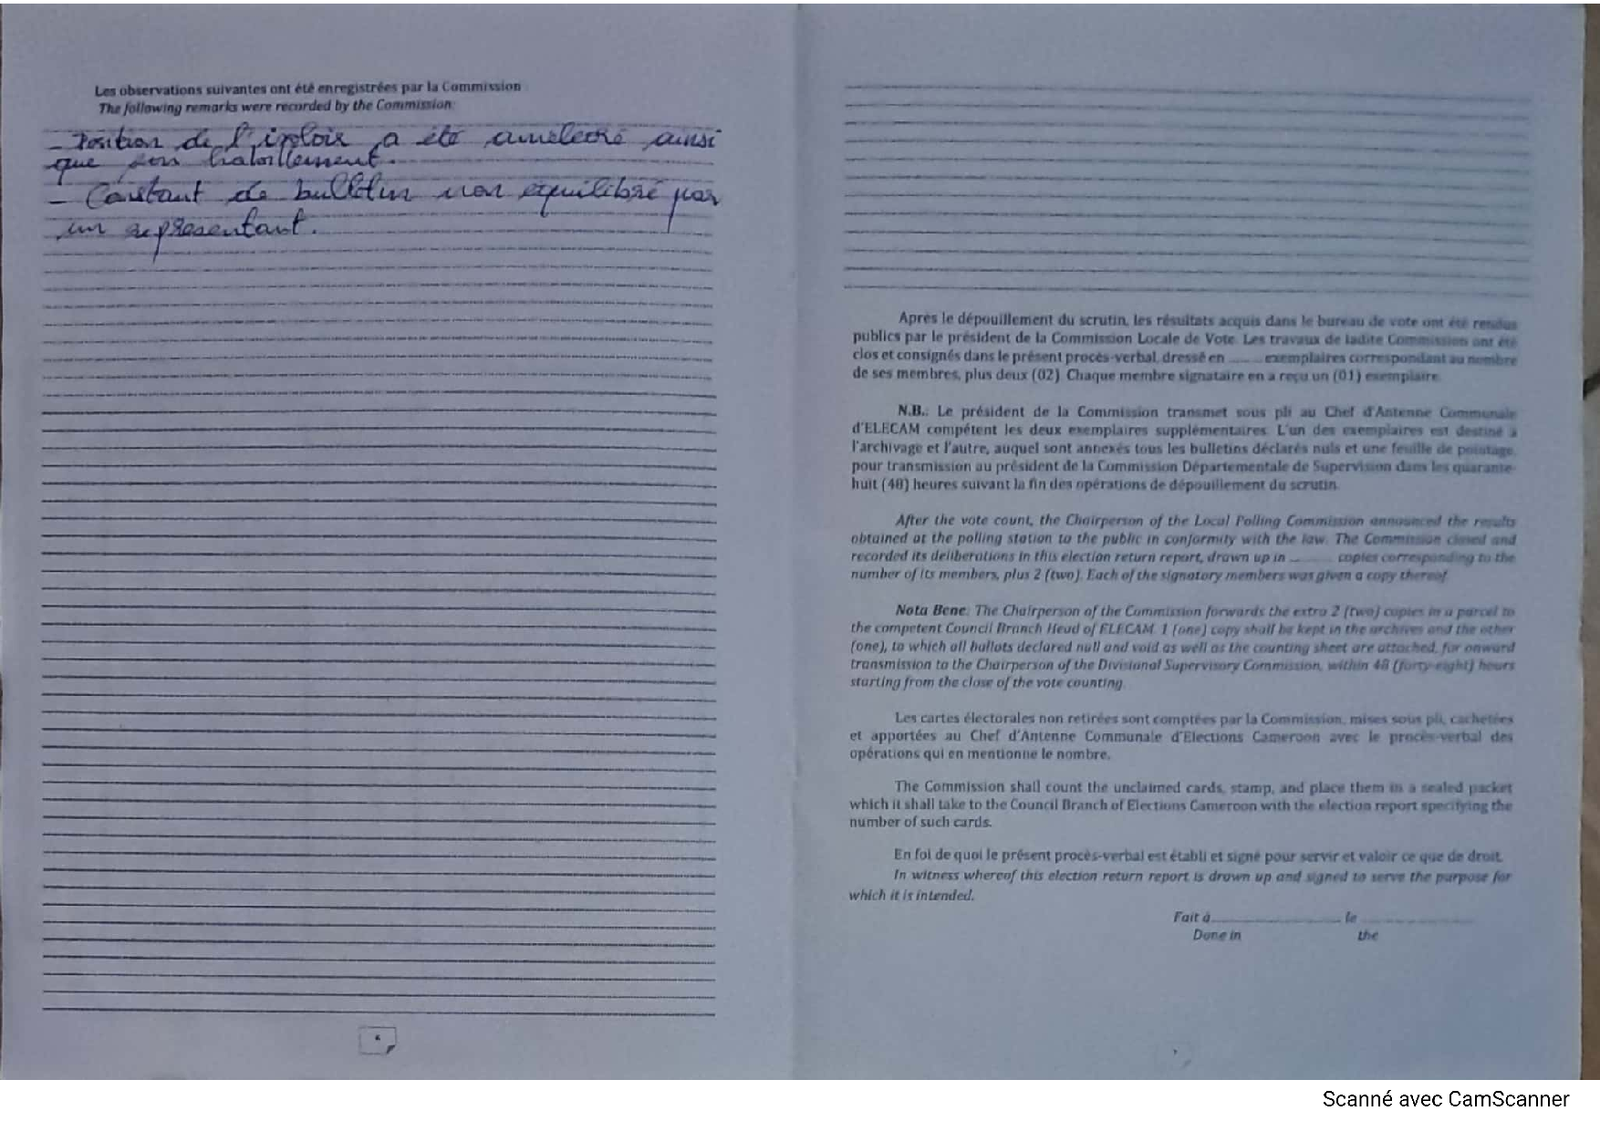 Les observations suivantes ont été enregistrées par la Commission
The following remarks were recorded by the Commission
- Position de l'isoloir a été ainsi
que son
- Constant de bulletin non equilibré par
un representant.
Après le dépouillement du scrutin, les résultats acquis dans le bureau de vote ont été rendus
publics par le président de la Commission Locale de Vote. Les travaux de ladite Commission ont été
clos et consignés dans le présent procès-verbal, dressé en ........... exemplaires correspondant au nombre
de ses membres, plus deux (02). Chaque membre signataire en a reçu un (01) exemplaire.
N.B.: Le président de la Commission transmet sous pli au Chef d'Antenne Communale
d'ELECAM compétent les deux exemplaires supplémentaires. L'un des exemplaires est destiné à
l'archivage et l'autre, auquel sont annexés tous les bulletins déclarés nuls et une feuille de pointage,
pour transmission au président de la Commission Départementale de Supervision dans les quarante-
huit (48) heures suivant la fin des opérations de dépouillement du scrutin.
After the vote count, the Chairperson of the Local Polling Commission announced the results
obtained at the polling station to the public in conformity with the law. The Commission closed and
recorded its deliberations in this election return report, drawn up in ........... copies corresponding to the
number of its members, plus 2 (two). Each of the signatory members was given a copy thereof.
Nota Bene: The Chairperson of the Commission forwards the extra 2 (two) copies in a parcel to
the competent Council Branch Head of ELECAM. 1 (one) copy shall be kept in the archives and the other
(one), to which all ballots declared null and void as well as the counting sheet are attached, for onward
transmission to the Chairperson of the Divisional Supervisory Commission, within 48 (forty-eight) hours
starting from the close of the vote counting.
Les cartes électorales non retirées sont comptées par la Commission, mises sous pli, cachetées
et apportées au Chef d'Antenne Communale d'Elections Cameroon avec le procès-verbal des
opérations qui en mentionne le nombre.
The Commission shall count the unclaimed cards, stamp, and place them in a sealed packet
which it shall take to the Council Branch of Elections Cameroon with the election report specifying the
number of such cards.
En foi de quoi le présent procès-verbal est établi et signé pour servir et valoir ce que de droit.
In witness whereof this election return report is drawn up and signed to serve the purpose for
which it is intended.
Fait à........................... le ...........................
Done in the
Scanné avec CamScanner